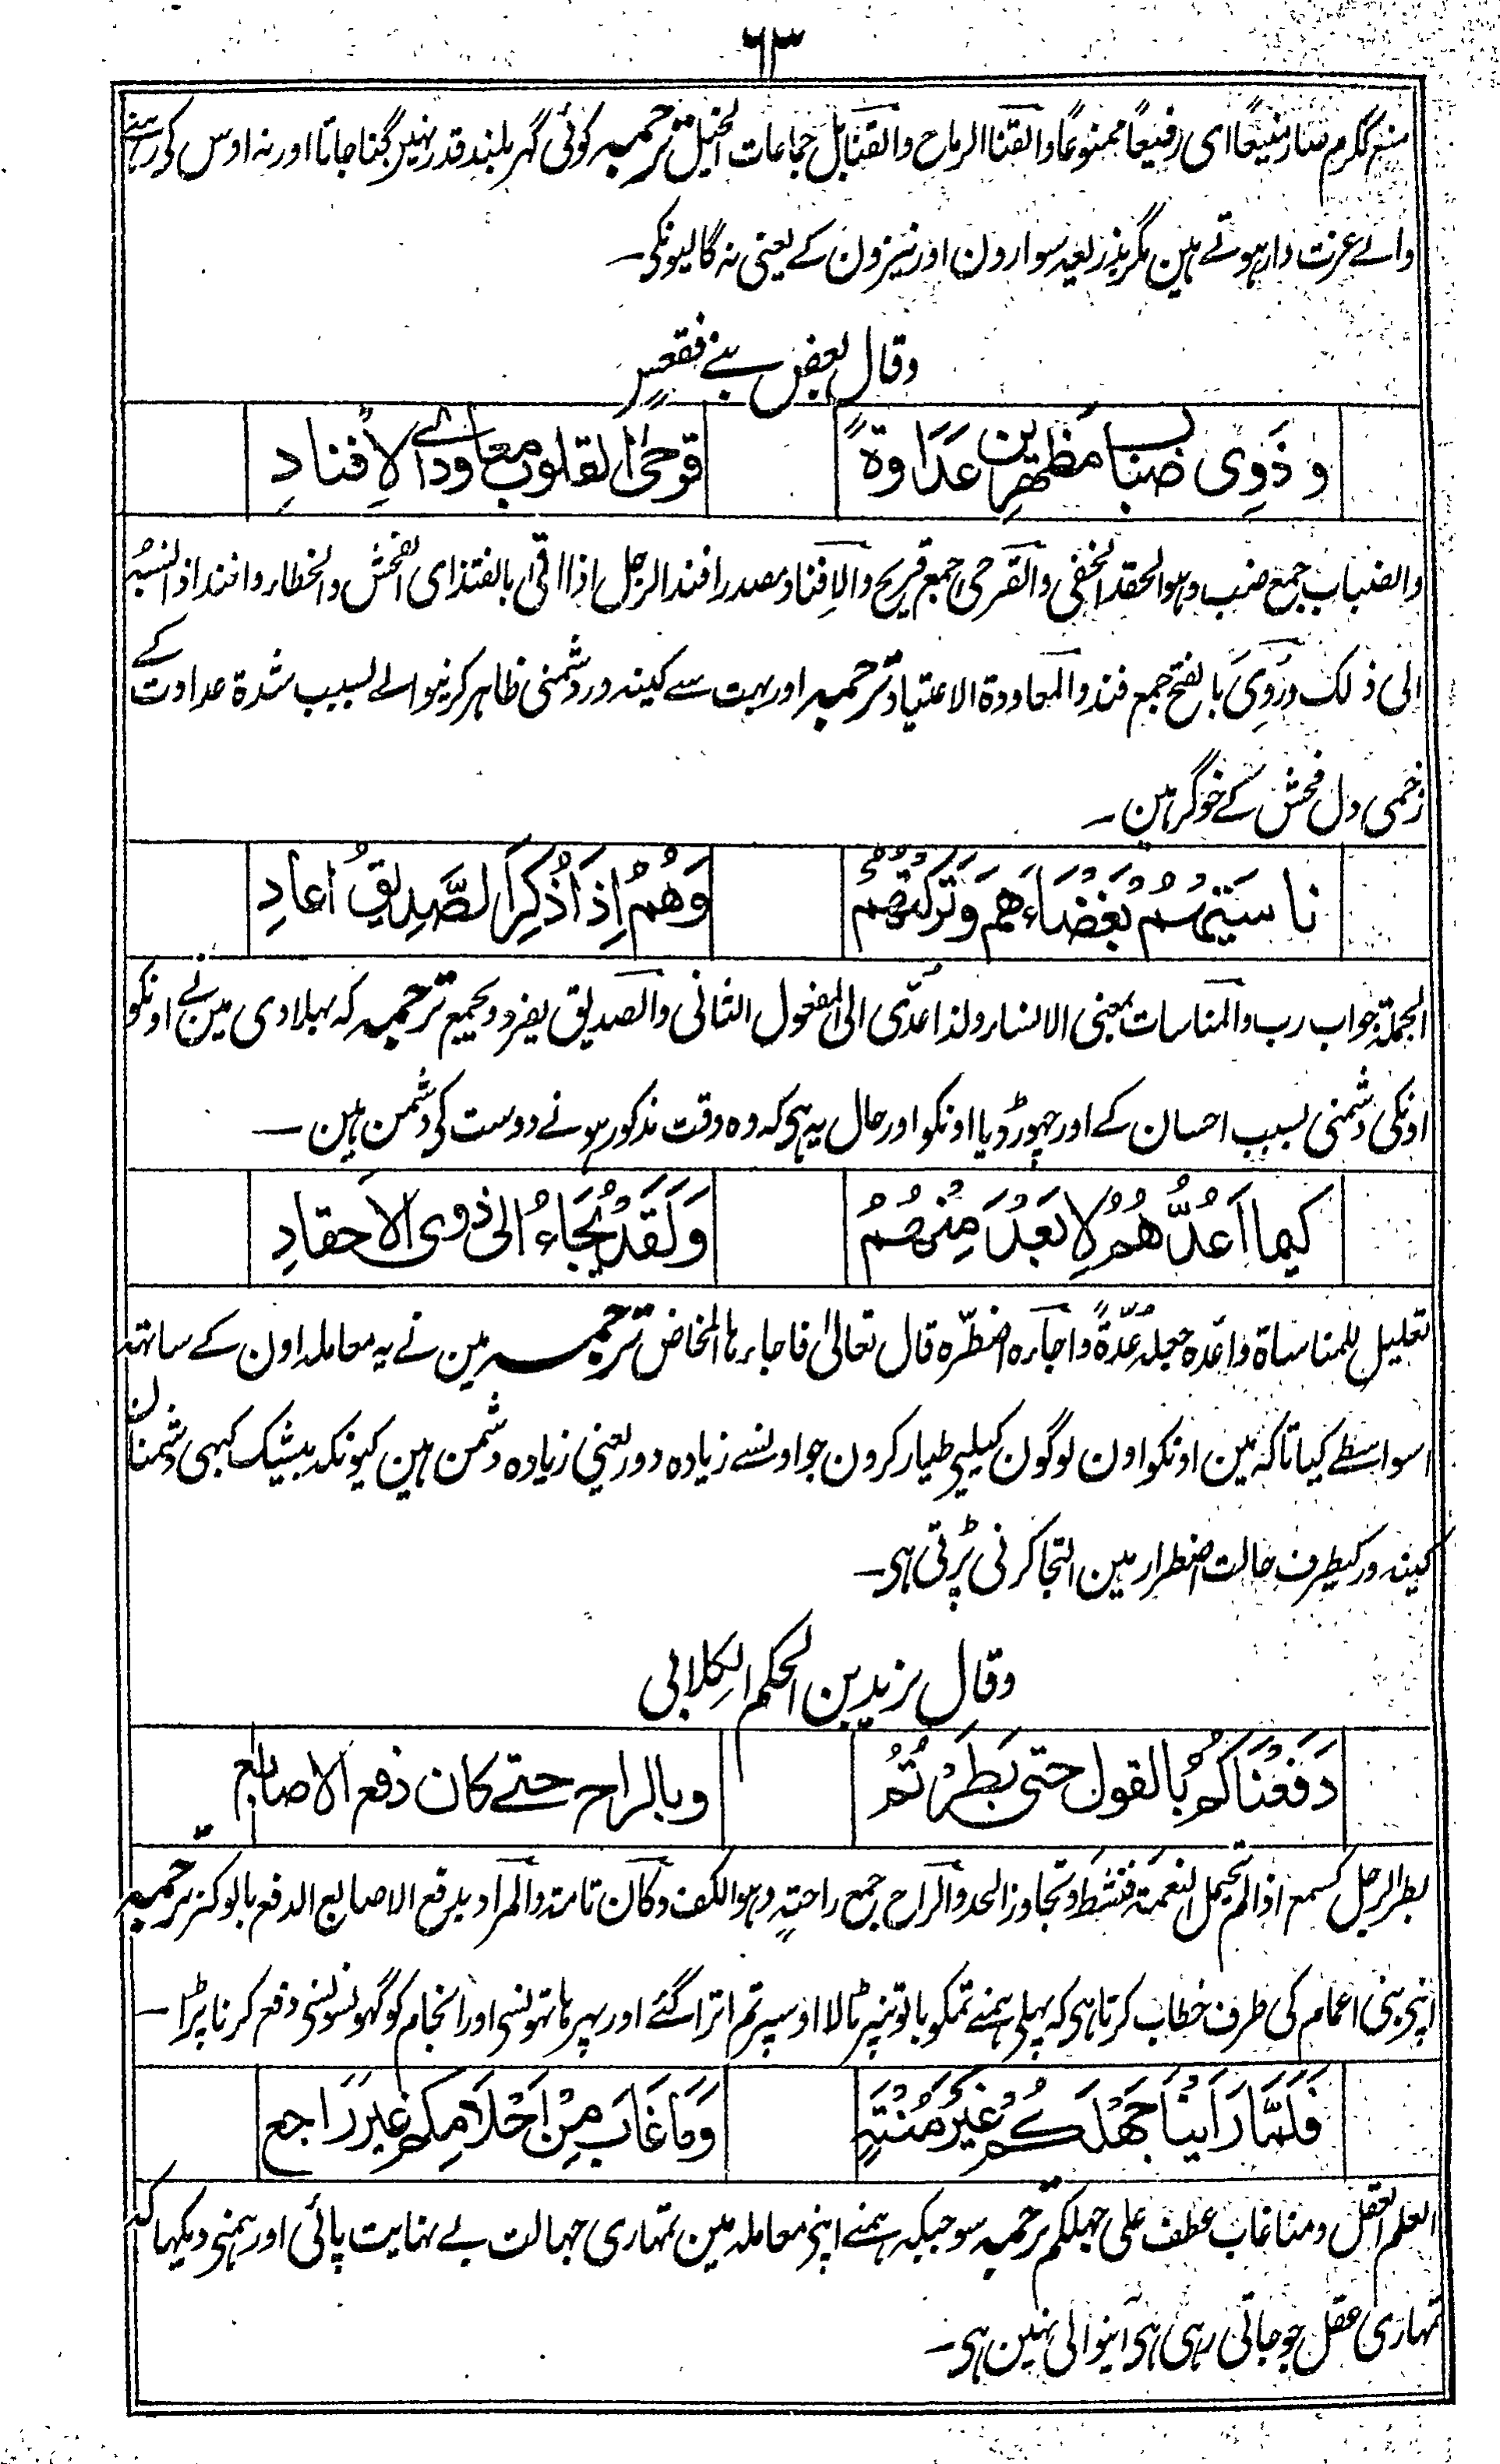 ٦٣
منع ككرم صار منيعًا اى رفيعًا ممنوعًا والقنا الرماح والقنابل جماعات الخيل ترجمہ کوئی گہر بلند قدر نہیں گنا جاتا اور نہ اوس کی رہنے
والے عزت دار ہوتے ہین مگر بذریعہ سوارون اور نیزون کے یعنی نہ گالیونکی۔
وقال بعض بنے فقعس
وَذَوِى ضبابٍ مظهرين عَدَاوةً
قرحى القلوب معاودى الاِفنادِ
والضباب جمع ضب وہو الحقد الخفى والقرحى جمع قريح والافناد مصدر افند الرجل اذا اتى بالفند اى الفحش والخطاء وافند اذا نسبہ
الى ذلك ورُوِىَ بالفتح جمع فند والمعاودة الاعتياد ترجمہ اور بہت سے کینہ ور دشمنی ظاہر کرنیوالے بسبب شدۃ عداوت کے
زخمی دل فحش کے خوگر ہین۔
ناسيتهم بُغْضَاءَهم وَتَرَكْتُهُمْ
وَهُمُ اِذَا ذُكِرَ الصَّدِيقُ اَعادِ
الجملة جواب رب والمناسات بمعنى الانساء ولذا عُدّى الى المفعول الثانى والصديق يفرد ويجمع ترجمہ کہ بہلا دی مین نے اونکو
اونکی دشمنی بسبب احسان کے اور چہوڑ دیا اونکو اور حال یہ ہی کہ وہ وقت مذکور ہونے دوست کی دشمن ہین۔
كيما اُعُدَّهُمُ لِاَبْعَدَ مِنْهُمُ
وَلَقَدْ يُجَاءُ الى ذوى الاَحقادِ
تعليل للمناساة واعدہ جعلہ عُدّةً واجاءہ اضطرّہ قال تعالىٰ فاجاءہا المخاض ترجمہ مین نے یہ معاملہ اون کے ساتھہ
اسواسطے کیا تاکہ مین اونکو اون لوگون کیلیی طیار کرون جو اونسے زیادہ دور یعنی زیادہ دشمن ہین کیونکہ بیشک کبہی دشمنان
کینہ ور کیطرف حالت اضطرار مین التجا کرنی پڑتی ہی۔
وقال یزید بن الحکم الکلابی
دَفَعْنَاكُمُ بالقول حتى بَطَرْتُمُ
وبالراح حتے كان دفع الاصابع
بطر الرجل كسمع اذا لم يحمل النعمة فنشط وتجاوز الحد والراح جمع راحةٍ وہو الكف وكان تامة والمراد بدفع الاصابع الدفع بالوكز ترجمہ
اپنی بنی اعمام کی طرف خطاب کرتا ہی کہ پہلی ہمنے تمکو باتونپر ٹالا اوسپر تم اترا گئے اور پہر ہاتہونسی اور انجام کو گہونسونسی دفع کرنا پڑا۔
فَلَمَّا رَاَيْنَا جَهْلَكُمْ غَيْرَ مُنْتَهٍ
وَمَا غَابَ مِنْ اَحْلَامِكُمْ غيرَ رَاجع
الحلم العقل وما غاب عطف على جهلكم ترجمہ سو جبکہ ہمنے اپنی معاملہ مین تمہاری جہالت بے نہایت پائی اور ہمنی دیکہا کہ
تمہاری عقل جو جاتی رہی ہی آنیوالی نہین ہی۔